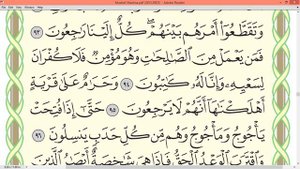 Mushaf Madina.pdf (SECURED) - Adobe Reader
وَتَقَطَّعُوٓا۟ أَمْرَهُم بَيْنَهُمْ ۖ كُلٌّ إِلَيْنَا رَٰجِعُونَ ٩٣
فَمَن يَعْمَلْ مِنَ ٱلصَّٰلِحَٰتِ وَهُوَ مُؤْمِنٌ فَلَا كُفْرَانَ
لِسَعْيِهِۦ وَإِنَّا لَهُۥ كَٰتِبُونَ ٩٤ وَحَرَٰمٌ عَلَىٰ قَرْيَةٍ
أَهْلَكْنَٰهَآ أَنَّهُمْ لَا يَرْجِعُونَ ٩٥ حَتَّىٰٓ إِذَا فُتِحَتْ
يَأْجُوجُ وَمَأْجُوجُ وَهُم مِّن كُلِّ حَدَبٍ يَنسِلُونَ ٩٦
وَٱقْتَرَبَ ٱلْوَعْدُ ٱلْحَقُّ فَإِذَا هِىَ شَٰخِصَةٌ أَبْصَٰرُ ٱلَّذِينَ